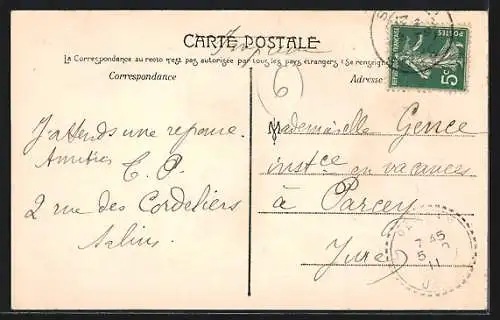 CARTE POSTALE
Imprimé
La Correspondance au recto n'est pas autorisée par tous les pays étrangers (Se renseign
Correspondance
Adresse
POSTES
REPUBLIQUE FRANÇAISE
5c
6
J'attends une reponse.
Amitiés
C. P.
2 rue des Cordeliers
Salins.
Mademoiselle Gence
instce en vacances
à Parcey
Jura
7 45
5
11